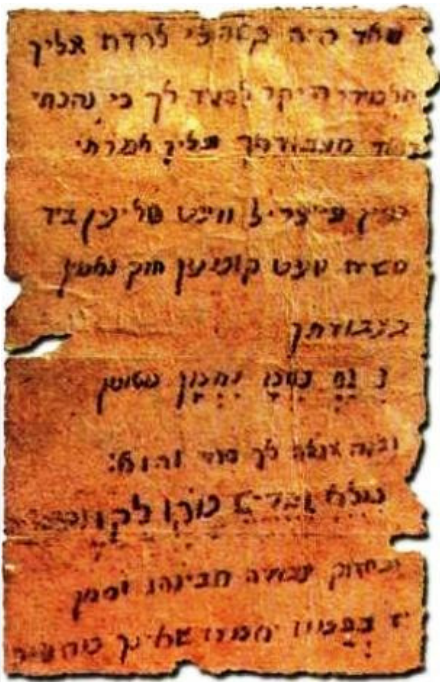 מאד היה קשה לי לרדת אליך
תלמידי היקר להגיד לך כי נהנתי
מאוד מעבודתך ועליך אמרתי
מיין פייערל וועט טליען ביז
משיח וועט קומען חזק ואמץ
בעבודתך
נ נח נחמ נחמן מאומן
ובזה אגלה לך סוד והוא:
מלא וגדיש מקו לקו
ובחזוק עבודה תבינהו וסמן
יז בתמוז יאמרו שאינך מתענה